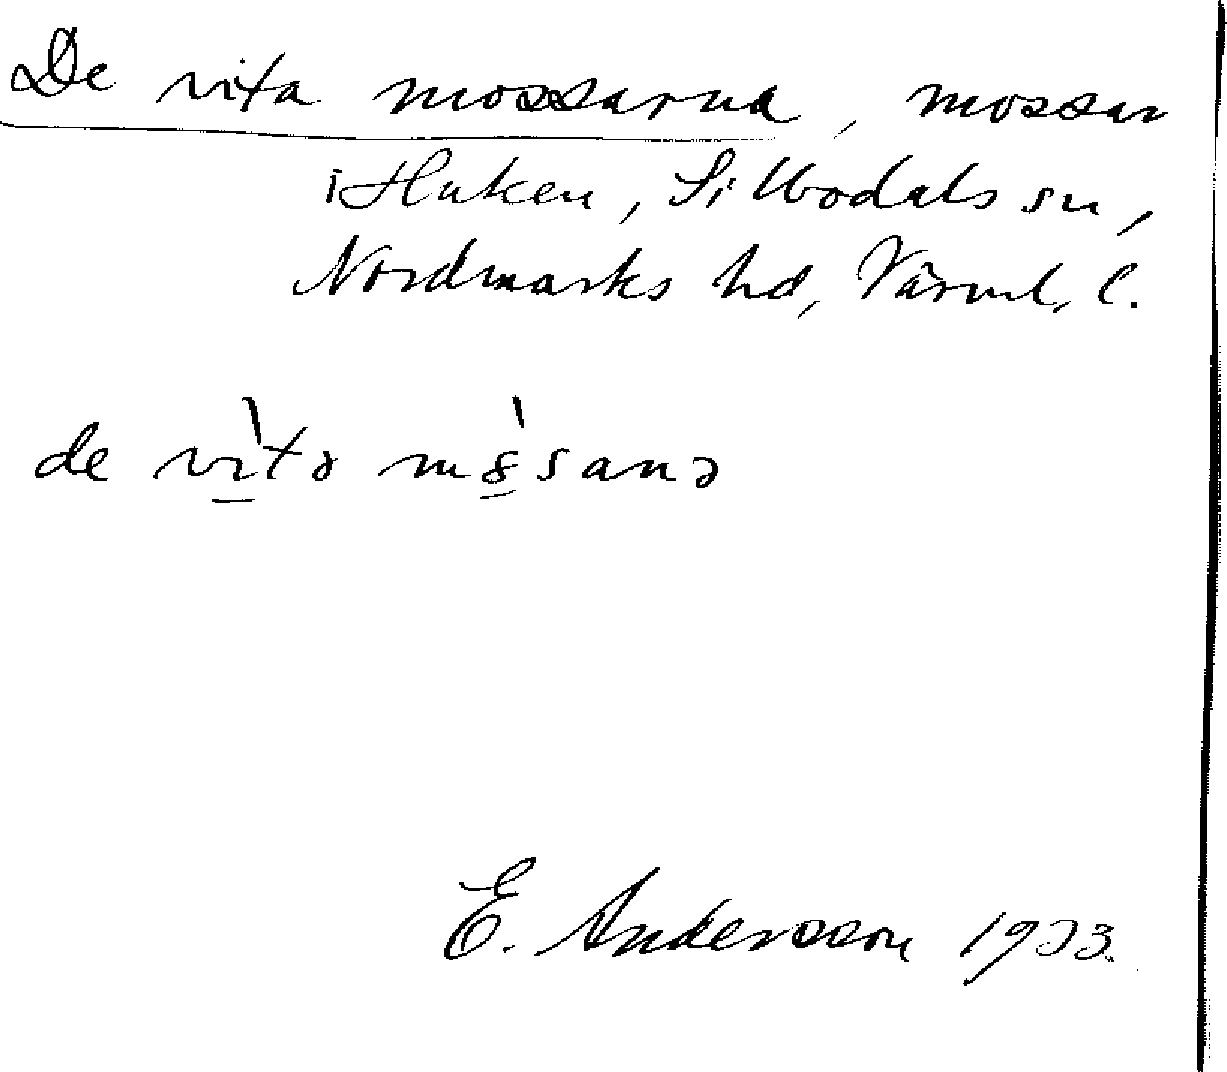 De vita mossarna, mossar
i Huken, Sillbodals sn,
Nordmarks hd, Värml. l.
de vìtə mòsanə
E. Andersson 1933.